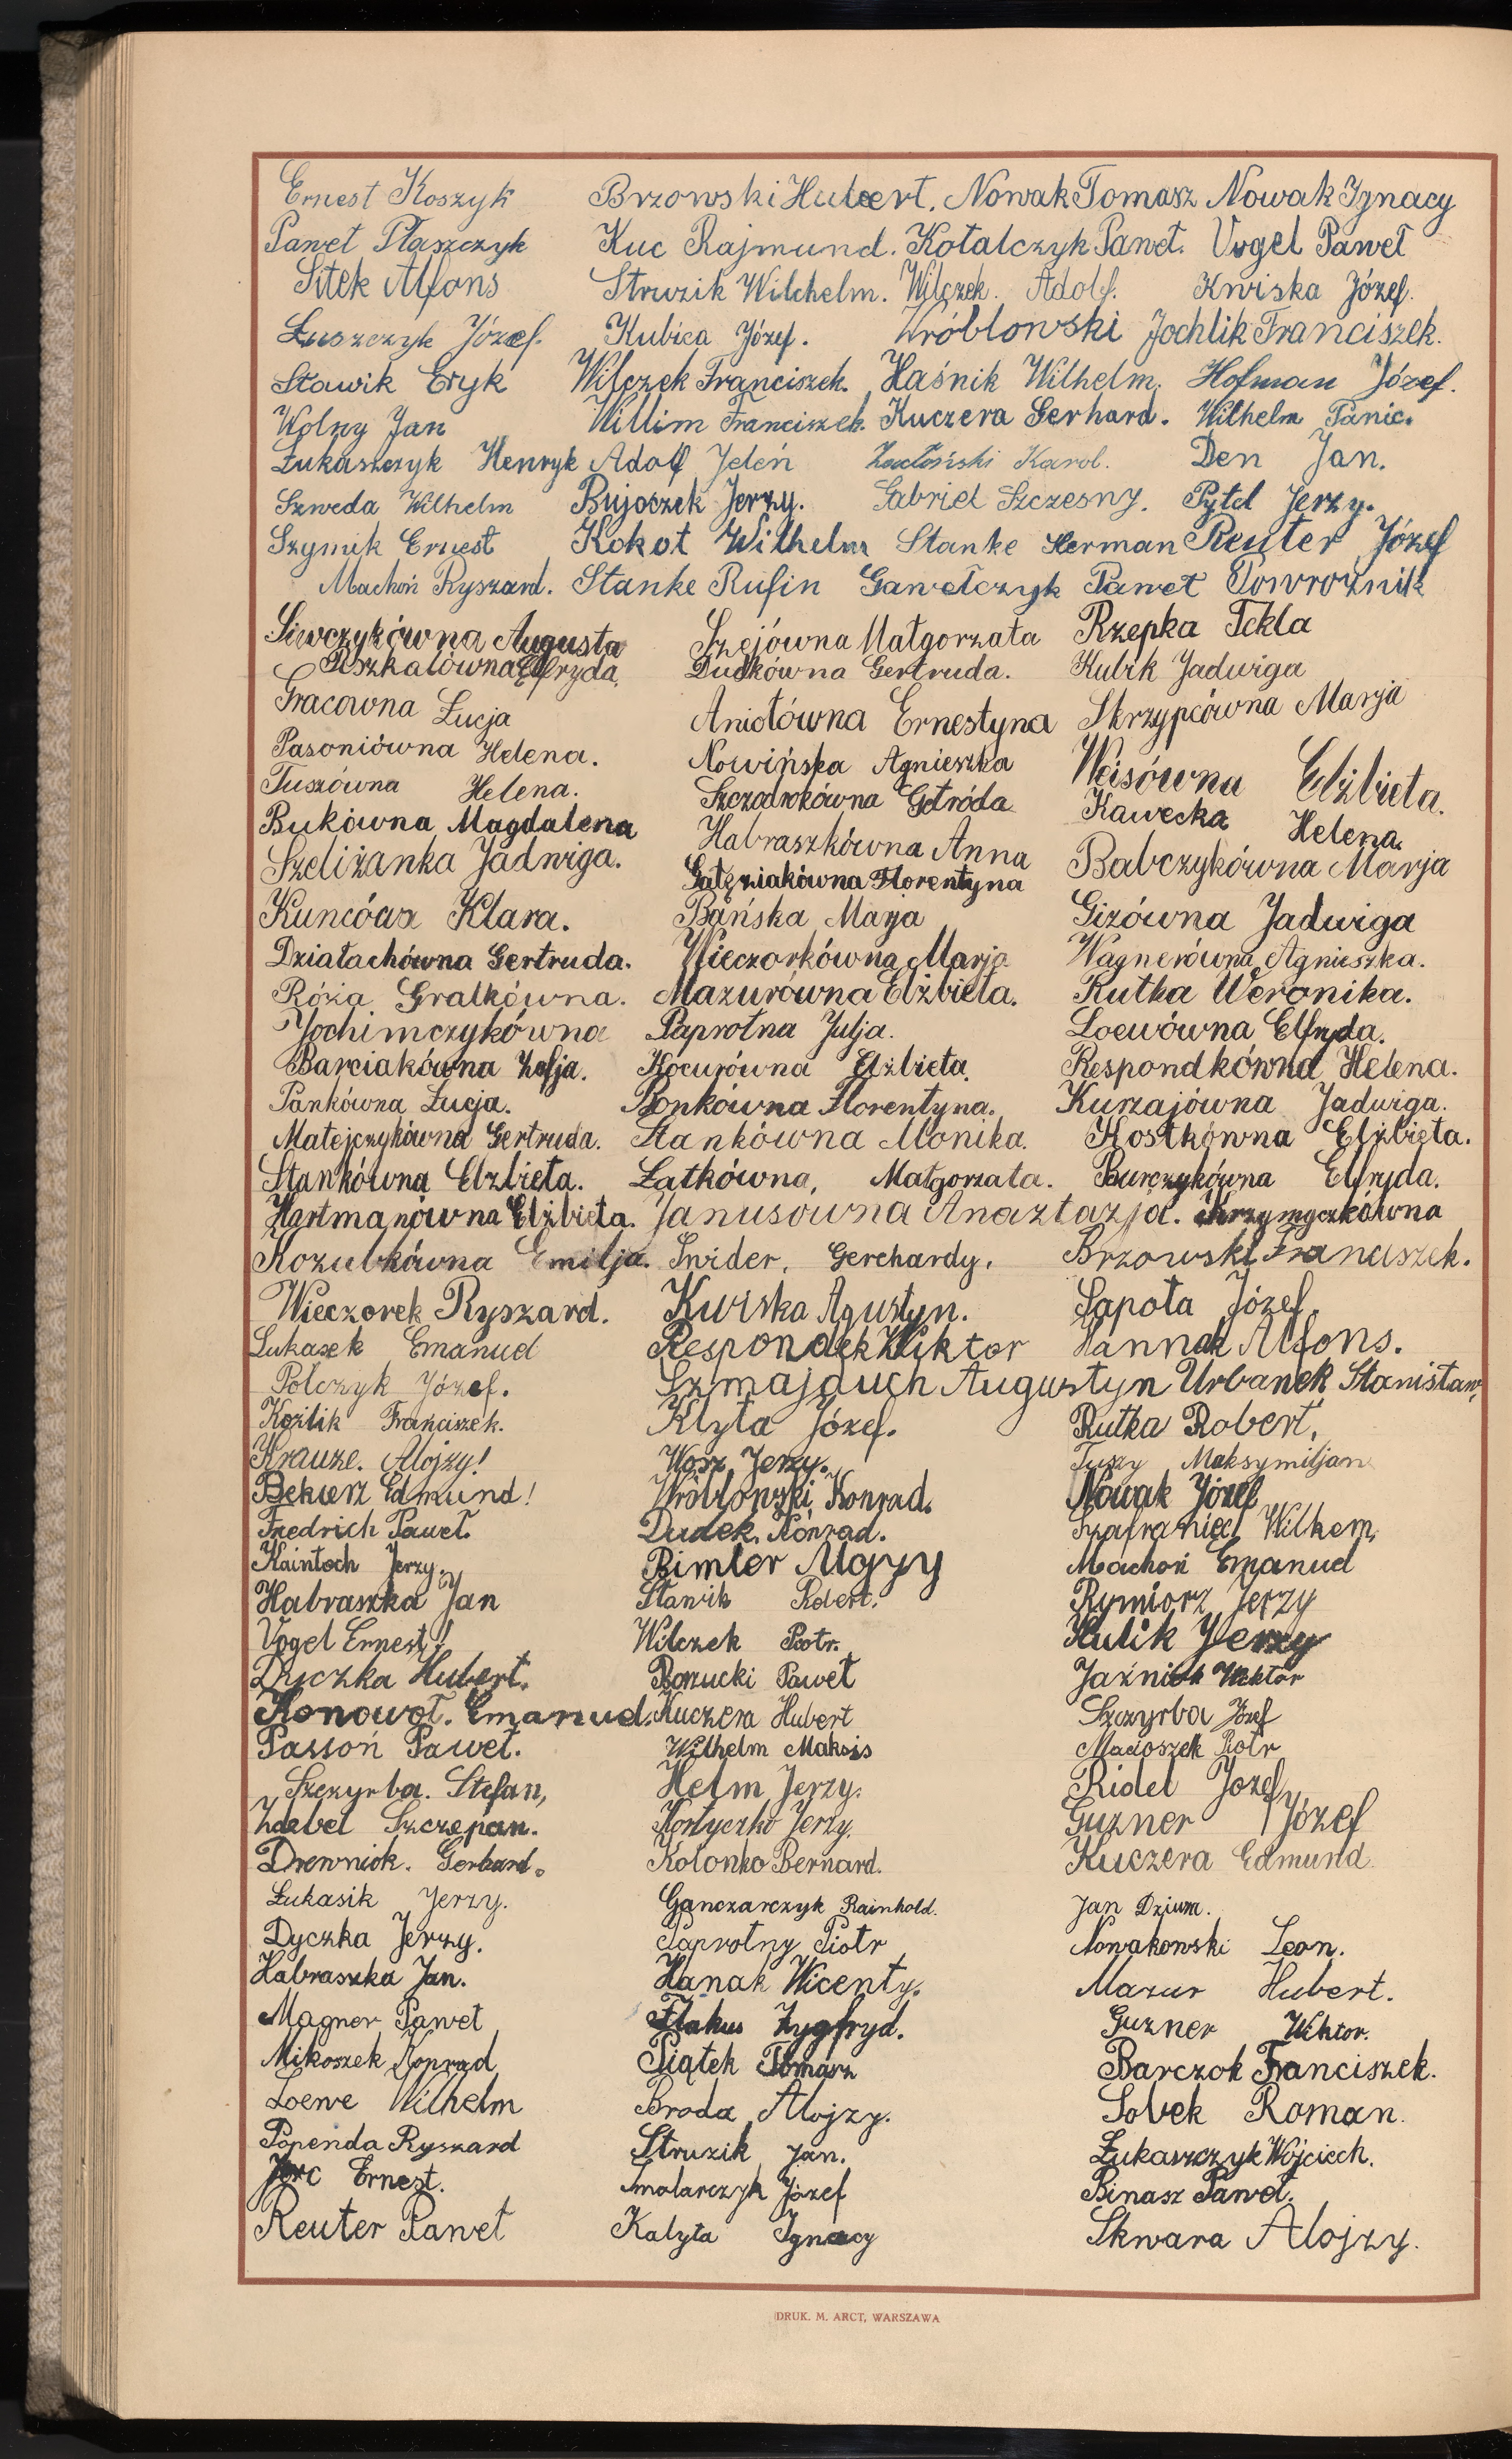 Ernest Koszyk Brzowski Hubert. Nowak Tomasz Nowak Ignacy
Paweł Płaszczyk Kuc Rajmund. Kotalczyk Paweł. Vogel Paweł
Sitek Alfons Struzik Wilchelm. Wilczek. Adolf. Kwiska Józef.
Łuszczyk Józef. Kubica Józef. Wróblowski Jochlik Franciszek.
Stawik Eryk Wilczek Franciszek. Haśnik Wilhelm. Hofman Józef.
Wolny Jan Willim Franciszek. Kuczera Gerhard. Wilhelm Panic.
Łukaszczyk Henryk Adolf Jeleń Karol. Den Jan.
Szweda Wilhelm Bujoczek Jerzy. Gabriel Szczesny. Pytel Jerzy.
Szymik Ernest Kokot Wilhelm Stanke Herman Reuter Józef
Machoń Ryszard. Stanke Rufin Gawełczyk Paweł Powroźnik
Siewczykówna Augusta Szejówna Małgorzata Rzepka Tekla
Elfryda. Dudkówna Gertruda. Kubik Jadwiga
Gracowna Łucja Aniołówna Ernestyna Skrzypcówna Marja
Pasoniówna Helena. Nowińska Agnieszka Weisówna Elżbieta.
Tuszówna Helena. Szczodrokówna Getróda Kawecka Helena.
Bukówna Magdalena Habraszkówna Anna Babczykówna Marja
Szeliżanka Jadwiga. Gałęziakówna Florentyna
Klara. Bańska Marja Gizówna Jadwiga
Działachówna Gertruda. Wieczorkówna Marja Wagnerówna Agnieszka.
Róża Gralkówna. Mazurówna Elżbieta. Rutka Weronika.
Jochimczykówna Paprotna Julja. Loewówna Elfryda.
Barciakówna Zofja. Kocurówna Elżbieta. Respondkówna Helena.
Pankówna Łucja. Bonkówna Florentyna. Kurzajówna Jadwiga.
Matejczykówna Gertruda. Stankówna Monika. Kostkówna Elżbieta.
Stankówna Elżbieta. Łatkówna, Małgorzata. Burczykówna Elfryda.
Hartmanówna Elżbieta. Janusówna Anaztazja. Krzymyczkówna
Kozubkówna Emilja. Świder. Gerchardy. Brzowski Franciszek.
Wieczorek Ryszard. Kwiska Agustyn. Sapota Józef.
Lukasek Emanuel Respondek Wiktor Hannak Alfons.
Polczyk Józef. Szmajduch Augustyn Urbanek Stanisław.
Koźlik Franciszek. Klyta Józef. Rutka Robert.
Krauze. Alojzy! Wosz Jerzy. Tuszy Maksymiljan
Bekierz Edmund! Wróblowski Konrad. Nowak Józef
Fredrich Paweł. Dudek. Konrad. Szafraniec Wilhem.
Kaintoch Jerzy. Bimler Alojzy Machoń Emanuel
Habraszka Jan Stawik Robert. Rymiorz Jerzy
Vogel Ernest! Wilczek Piotr. Hulik Jerzy
Dyczka Hubert. Borucki Paweł Jaźniok Wiktor
Konowoł. Emanuel. Kuczera Hubert Szczyrba Józef
Passoń Paweł. Wilhelm Maksis Macioszek Piotr
Szczyrba. Stefan, Helm Jerzy. Ridel Jozef
Zdebel Szczepan. Kostyczko Jerzy. Guzner Józef
Drewniok. Gerhard. Kolonko Bernard. Kuczera Edmund.
Łukasik Jerzy. Ganczarczyk Rainhold. Jan Dzium.
Dyczka Jerzy. Paprotny Piotr Nowakowski Leon.
Habraszka Jan. Hanak Wicenty. Mazur Hubert.
Magner Paweł Flakus Zygfryd. Guzner Wiktor.
Mikoszek Konrad Piątek Tomasz Barczok Franciszek.
Loewe Wilhelm Broda Alojzy. Sobek Roman.
Popenda Ryszard Struzik Jan. Łukaszczyk Wojciech.
Ernest. Smolarczyk Józef Binasz Paweł.
Reuter Paweł Kalyta Ignacy Skwara Alojzy.
DRUK. M. ARCT, WARSZAWA